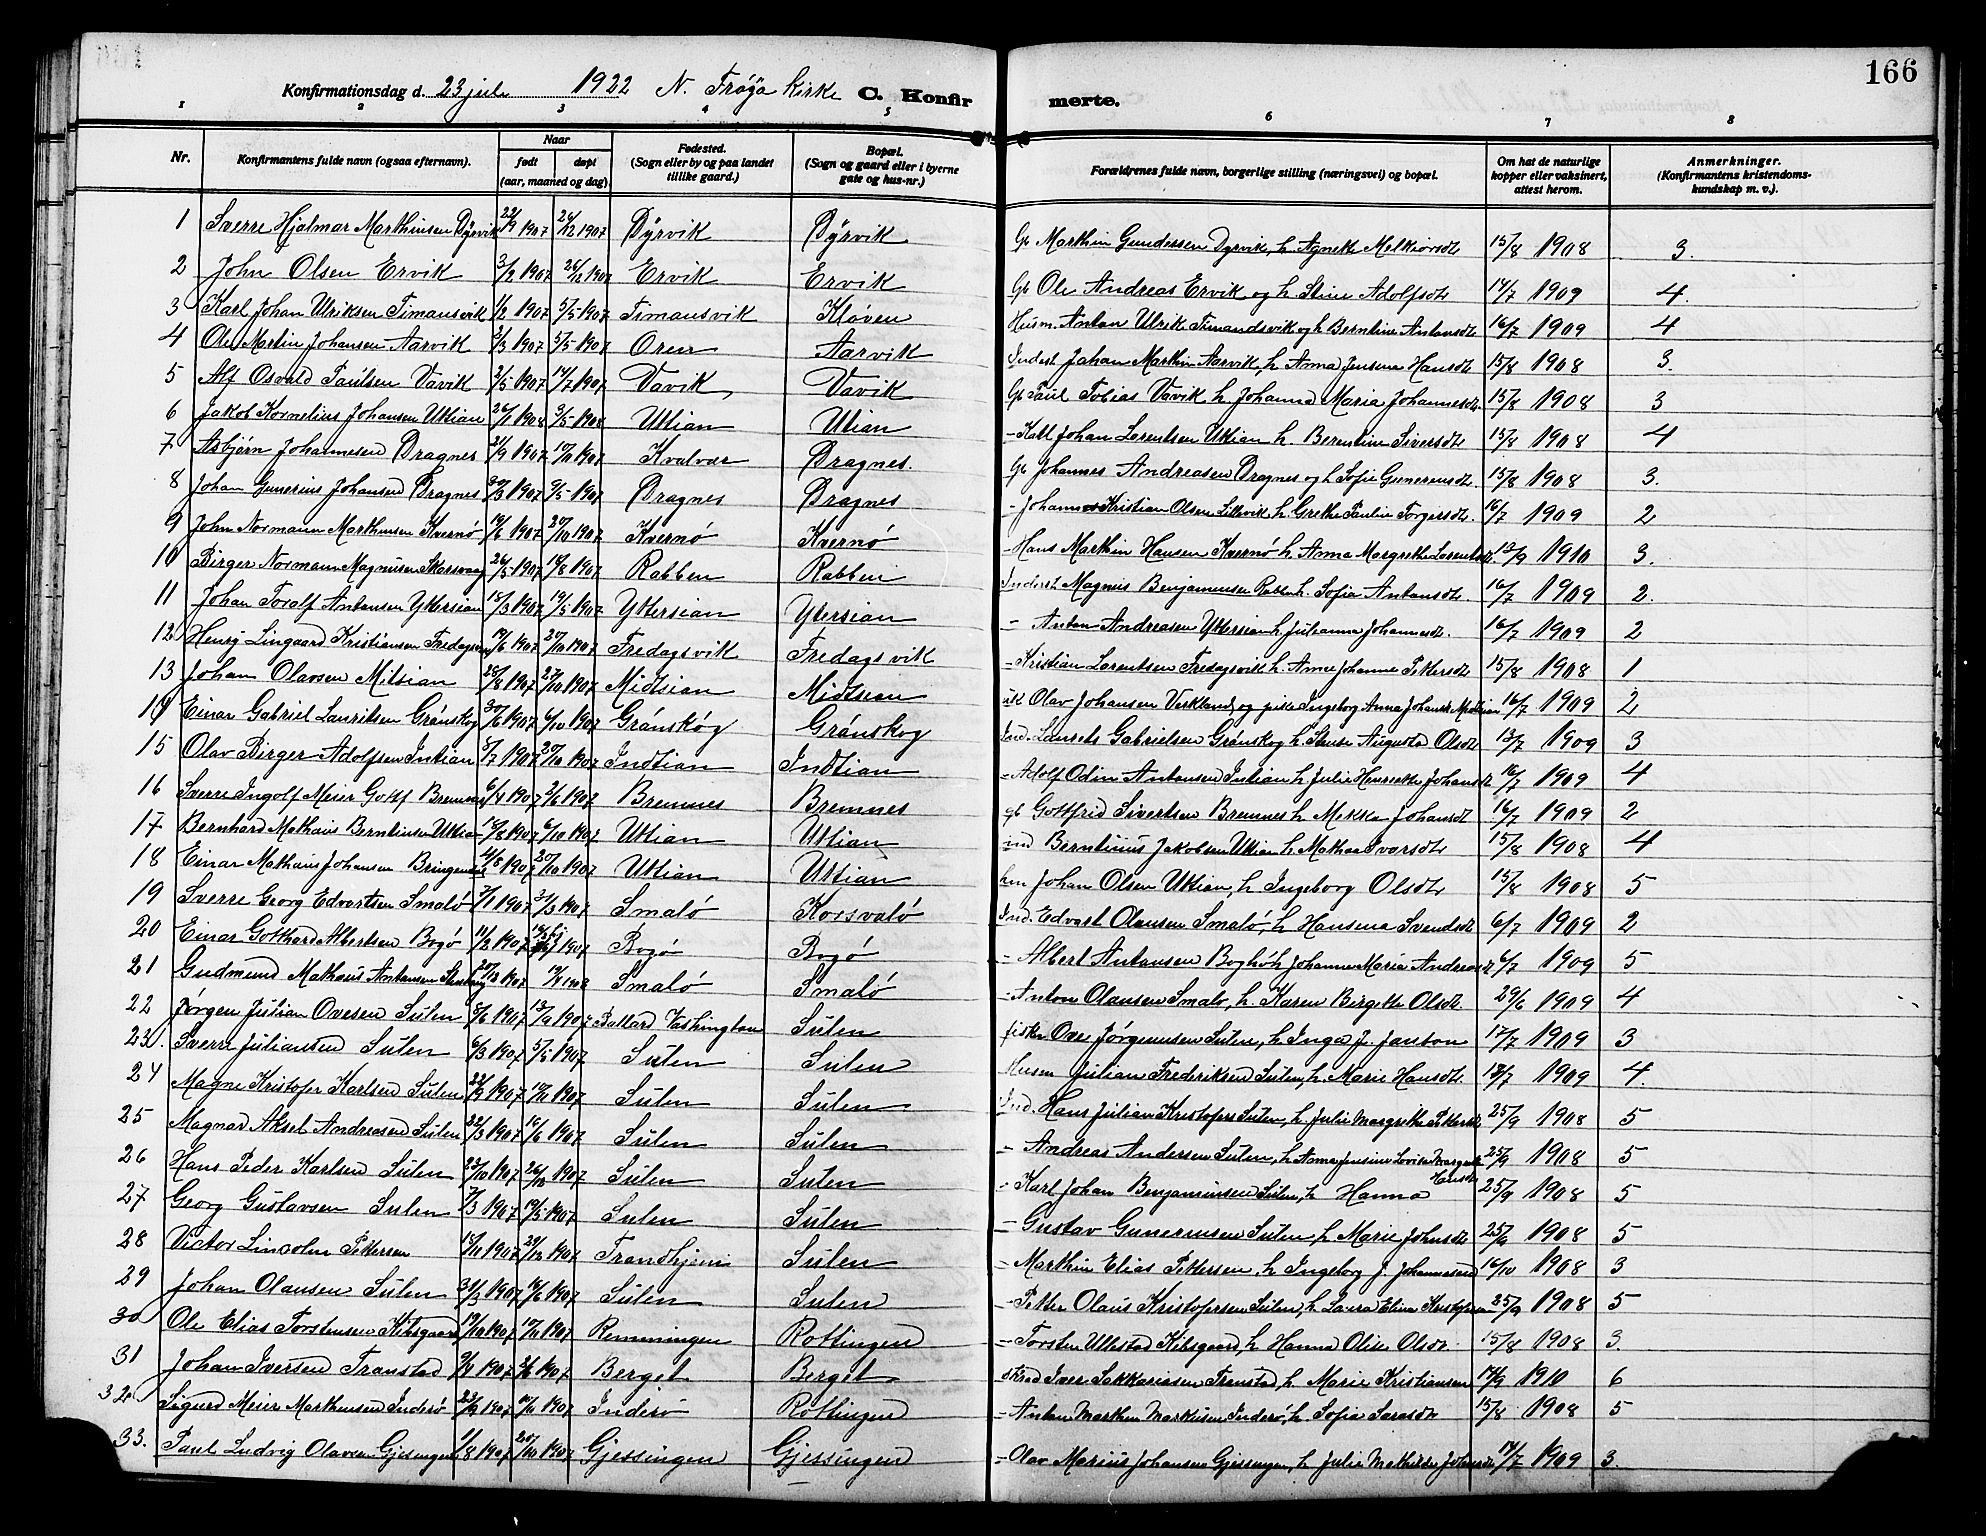 166
Konfirmationsdag d. 23 juli 1922 N. Frøya kirke C. Konfirmerte.
1 2 3 4 5 6 7 8
Nr. Konfirmantens fulde navn (ogsaa efternavn). Naar født døpt (aar, maaned og dag). Fødested. (Sogn eller by og paa landet tillike gaard.) Bopæl. (Sogn og gaard eller i byerne gate og hus-nr.) Forældrenes fulde navn, borgerlige stilling (næringsvei) og bopæl. Om hat de naturlige kopper eller vaksinert, attest herom. Anmerkninger. (Konfirmantens kristendomskundskap m. v.).
1 Sverre Hjalmar Marthinsen Dyrvik 22/9 1907 26/12 1907 Dyrvik Dyrvik Gb Marthin Gundersen Dyrvik, h. Agnete Melkiorsdt 15/8 1908 3.
2 John Olsen Ervik 3/2 1907 26/12 1907 Ervik Ervik Gb Ole Andreas Ervik og h. Stine Adolfsdt 14/7 1909 4.
3 Karl Johan Ulriksen Timansvik 1/2 1907 5/5 1907 Timansvik Kløven Husm. Anton Ulrik Timandsvik og h Berntine Antonsdt 16/7 1909 4
4 Ole Martin Johansen Aarvik 2/3 1907 5/5 1907 Oren Aarvik Inderst Johan Marthin Aarvik, h. Anna Jensine Hansdt 15/8 1908 3.
5 Alf Osvald Paulsen Vavik 2/5 1907 14/7 1907 Vavik Vavik Gb Paul Tobias Vavik h. Johanna Maria Johannesdt. 15/8 1908 3
6 Jakob Kornelius Johansen Uttian 26/1 1908 3/5 1908 Uttian Utian - Karl Johan Lorentsen Uttian h. Berentine Siversdt 15/8 1908 4
7 Asbjørn Johannesen Dragnes 21/9 1907 10/11 1907 Kvalvær Dragnes. Gb Johannes Andreasen Dragnes og h Sofie Gunerusdt. 15/8 1908 3.
8 Johan Gunerius Johansen Dragnes 1907 9/5 1907 Dragnes Dragnes - Johannes Kristian Olsen Sillevik, h. Grethe Pauline Torgersdt. 16/7 1909 2
9 John Normann Marthinsen Kvernø 14/6 1907 20/10 1907 Kvernø Kvernø - Hans Marthin Hansen Kvernø h. Anna Margrethe Lorentsdt 13/9 1910 3.
10 Birger Normann Magnusen Skarsvaag 26/5 1907 18/8 1907 Rabben Rabben Inderst Magnus Benjaminsen Rabben h. Sofia Antonsdt. 16/7 1909 2.
11 Johan Toralf Antonsen Yttersian 15/3 1907 19/5 1907 Yttersian Yttersian - Anton Andreasen Yttersian h. Julianna Johannesdt. 16/7 1909 2
12 Henry Lingaard Kristiansen Fredagsvik 19/6 1907 20/10 1907 Fredagsvik Fredagsvik - Kristian Lorentsen Fredagsvik h. Anne Johanna Pettersdt 15/8 1908 1
13 Johan Olavsen Mitsian 28/8 1907 27/10 1907 Midtsian Midtsian Olav Johansen Verkland og pike Ingeborg Anna Johansd Midtsian 16/7 1909 2
14 Einar Gabriel Lauritsen Grønskog 30/6 1907 6/10 1907 Grønskog Grønskog Ind. Laurets Gabrielsen Grønskog h. Augusta Olsdt 13/7 1909 3
15 Olav Birger Adolfsen Intian 8/7 1907 20/10 1907 Indtian Indtian - Adolf Odin Antonsen Intian h. Julie Henrette Johansdt 16/7 1909 4
16 Sverre Ingolf Meier Gottf Bremnes 6/4 1907 2/6 1907 Bremnes Bremnes gb Gottfrid Sivertsen Bremnes h. Mekka Johansdt 16/7 1909 2
17 Bernhard Mathæus Berntinsen Uttian 18/8 1907 6/10 1907 Uttian Uttian ind Berntinus Jakobsen Uttian h. Mathea Ivarsdt 15/8 1908 4
18 Einar Mathæus Johansen 4/8 1907 20/10 1907 Uttian Uttian hm Johan Olsen Uttian, h. Ingeborg Olsdt 15/8 1908 5
19 Sverre Georg Edvartsen Smalø 7/1 1907 31/3 1907 Smalø Korsvalø Ind. Edvart Olausen Smalø, h. Hansina Svendsdt 6/7 1909 2
20 Einar Gotthard Albertsen Bogø 11/2 1907 1907 Bogø Bogø - Albert Antonsen Boghø h Johanna Maria Andreasdt 6/7 1909 5
21 Gudmund Mathæus Antonsen 1907 1908 Smalø Smalø - Anton Olausen Smalø, h. Karen Birgitte Olsdt. 29/6 1909 4
22 Jørgen Julian Ovesen Sulen 8/6 1907 13/9 1907 Ballard Vashington Sulen fisker Ove Jørgensen Sulen, h. Inga J. Janson 17/7 1909 3
23. Sverre Juliansen Sulen 6/3 1907 5/5 1907 Sulen Sulen Husm Julian Frederiksen Sulen, h. Marie Hansdt. 13/7 1909 4.
24 Magne Kristofer Karlsen Sulen 22/9 1907 10/11 1907 Sulen Sulen Ind. Hans Julian Kristofers Sulen, h. Julie Margrethe Pettersdt 25/9 1908 5
25 Magnar Aksel Andreasen Sulen 22/3 1907 19/6 1907 Sulen Sulen - Andreas Andersen Sulen, h. Anna Jensine Lovise Margrete Hansdt 25/9 1908 5
26 Hans Peder Karlsen Sulen 23/10 1907 26/12 1907 Sulen Sulen - Karl Johan Benjaminsen Sulen, h. Hanna 25/9 1908 5
27 Georg Gustavsen Sulen 7/3 1907 19/5 1907 Sulen Sulen - Gustav Gunerusen Sulen, h. Marie Johnsdt 25/9 1908 5
28 Victor Lincoln Pettersen 15/11 1907 29/12 1907 Trondhjem Sulen - Marthin Elias Pettersen, h. Ingeborg J. Johannesen 16/10 1908 3
29 Johan Olausen Sulen 31/3 1907 16/6 1907 Sulen Sulen - Petter Olaus Kristofersen Sulen, h. Laura Elina Kristofersen 25/9 1908 5
30 Ole Elias Torstensen Kibsgaard 19/10 1907 17/11 1907 Remmingen Rottingen - Torsten Ullestad Kibsgaard, h. Hanna Olise Olsdt. 15/8 1908 3.
31 Johan Iversen Transtad 9/4 1907 2/6 1907 Berget Berget Iver Sakkariasen Transtad, h. Marie Kristiansen 14/9 1910 6
32. Sigurd Meier Marthinsen Inderø 22/9 1907 10/11 1907 Inderø Rottingen - Anton Marthin Markusen Inderø, h. Sofia Larsdt 15/8 1908 5
33. Paul Ludvig Olavsen Gjessingen 1/8 1907 20/10 1907 Gjessingen Gjessingen - Olav Marius Johansen Gjessingen, h. Julie Mathilde Johansdt 14/7 1909 3.